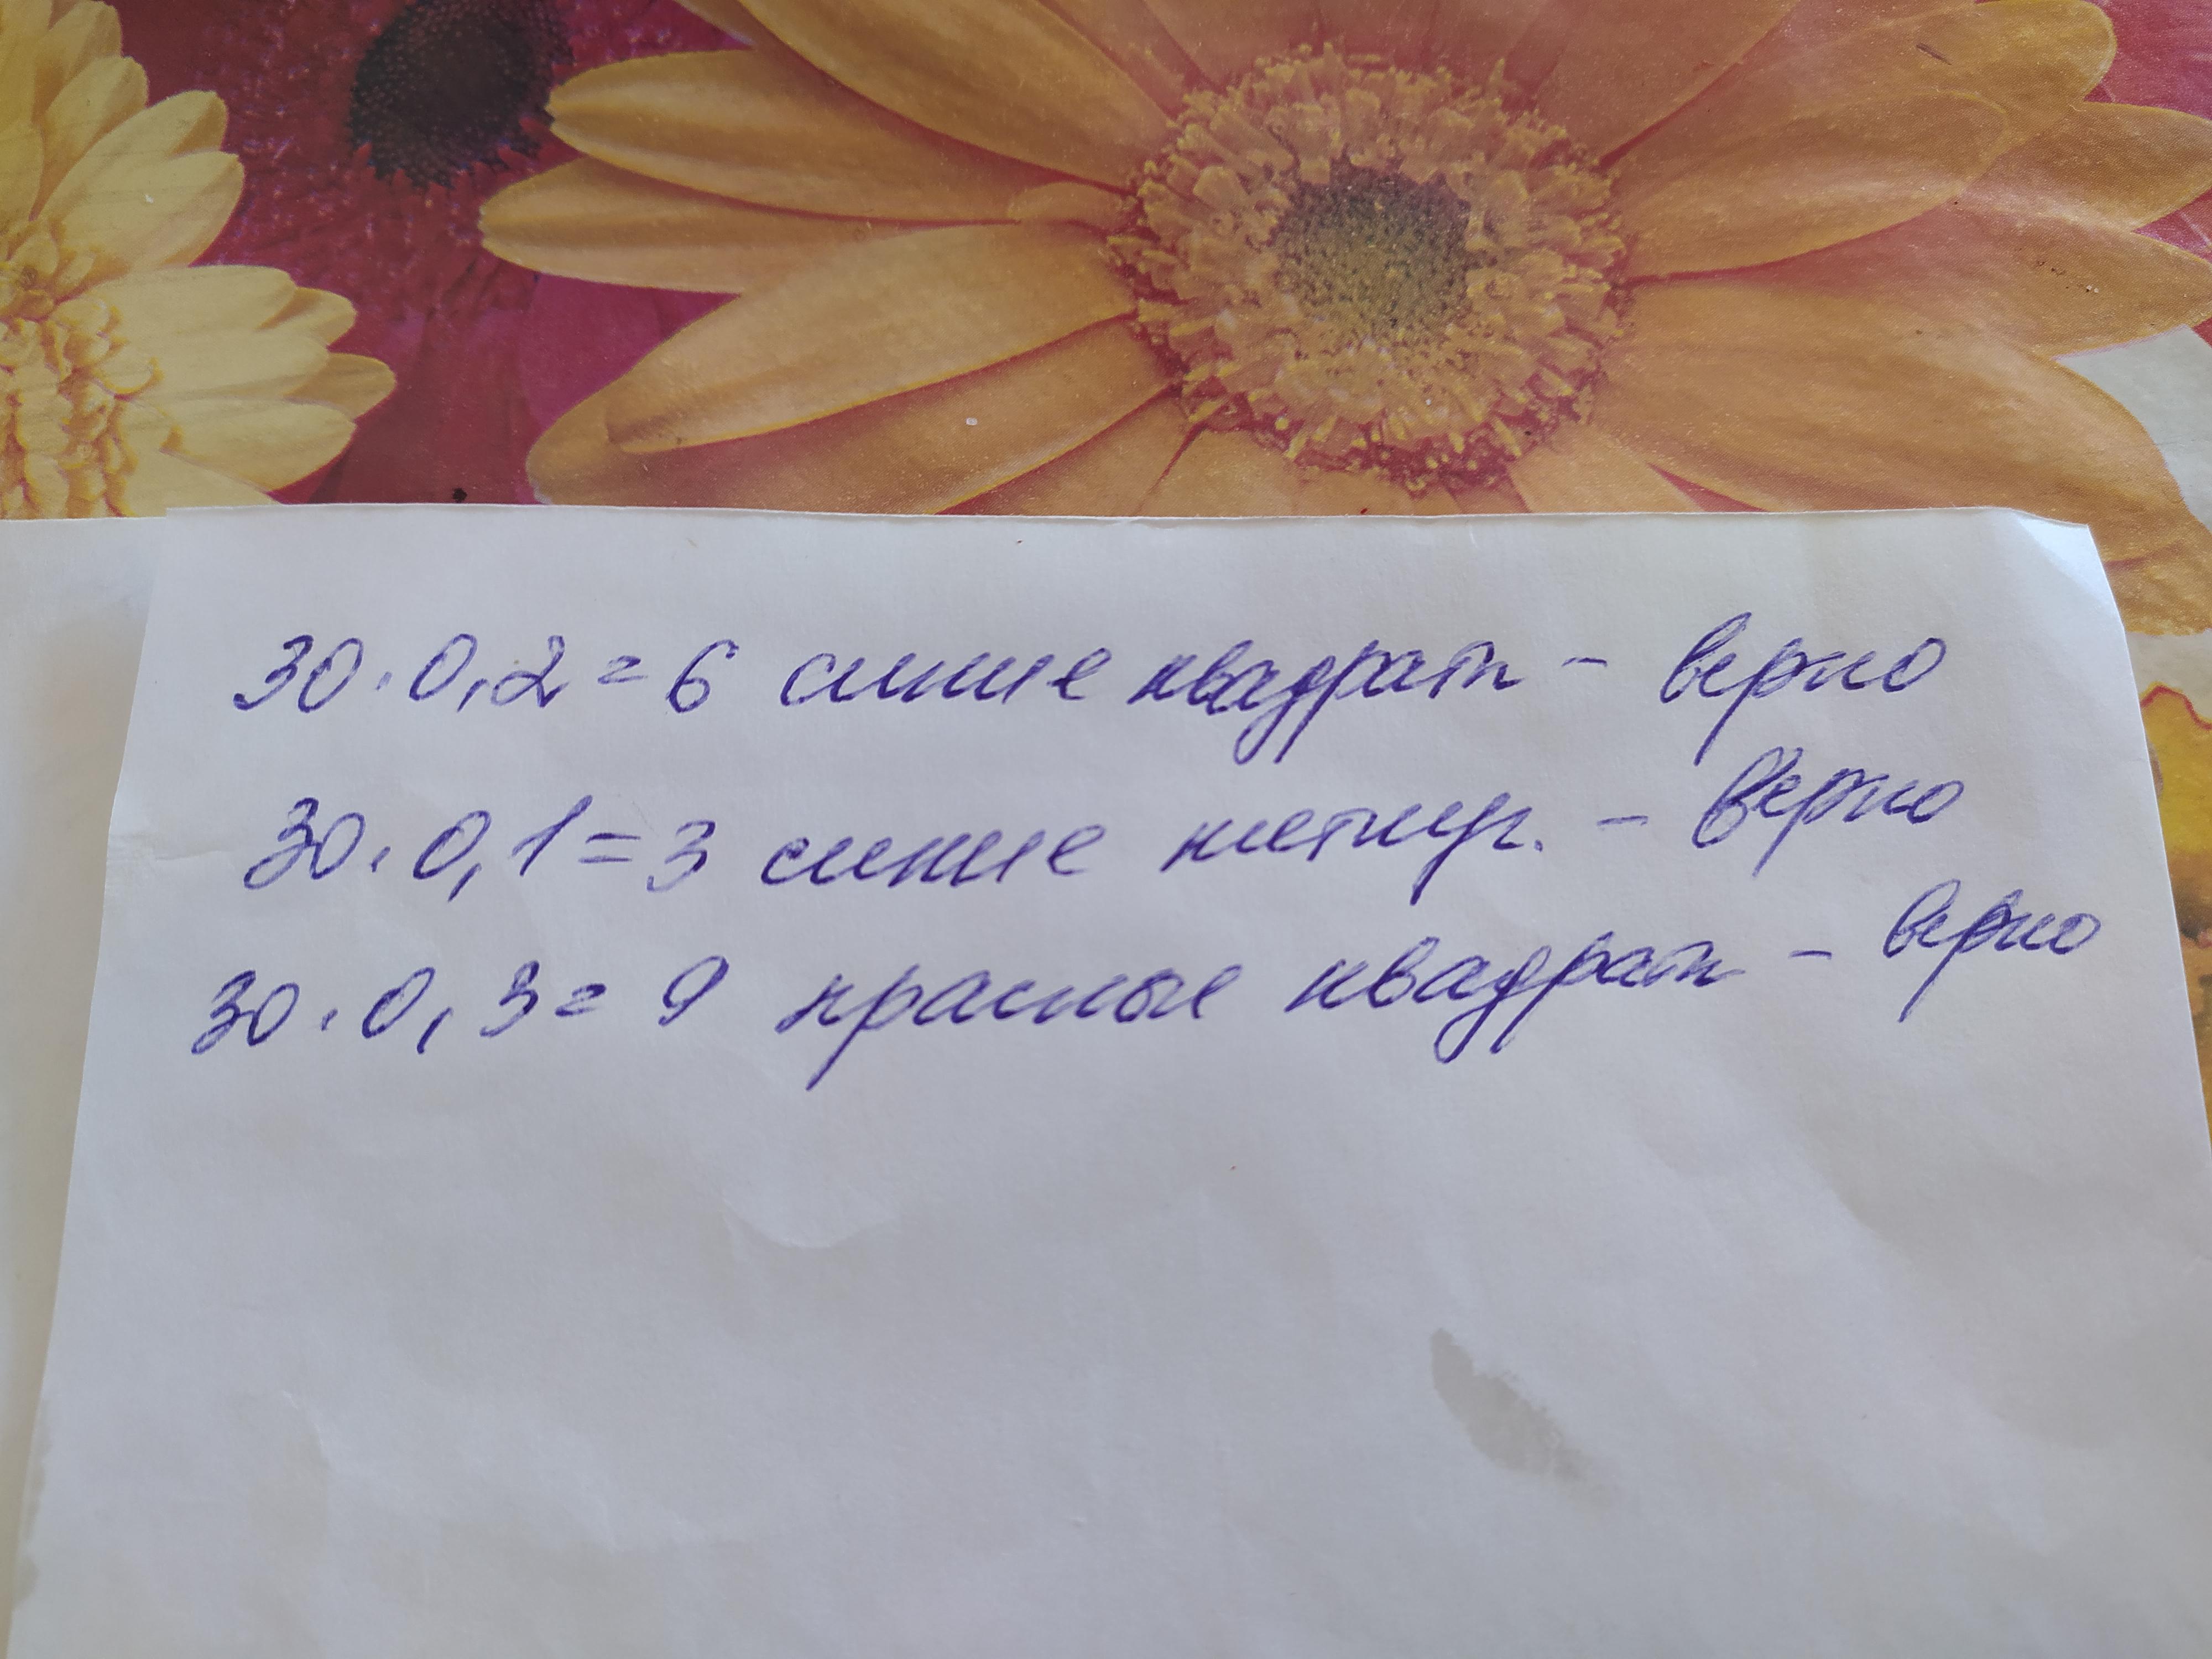 30 · 0,2 = 6 синие квадрат - верно
30 · 0,1 = 3 синие - верно
30 · 0,3 = 9 красные квадрат - верно